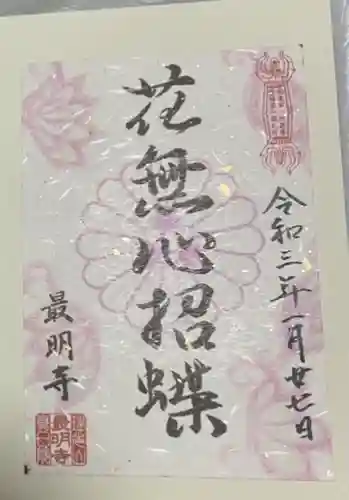 令和三年一月廿七日
花無心招蝶
最明寺
最明寺